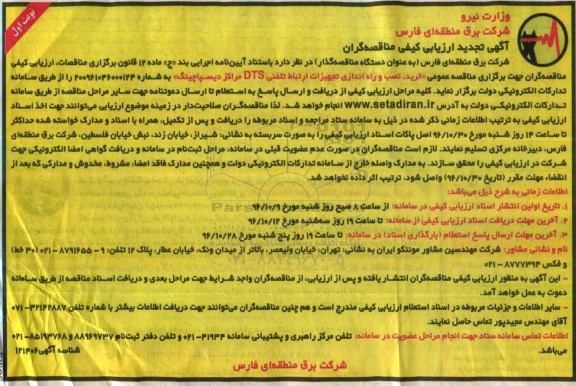 نوبت اول
وزارت نیرو
شرکت برق منطقه‌ای فارس
آگهی تجدید ارزیابی کیفی مناقصه‌گران
شرکت برق منطقه‌ای فارس (به عنوان دستگاه مناقصه‌گذار) در نظر دارد باستناد آیین‌نامه اجرایی بند (ج) ماده ۱۲ قانون برگزاری مناقصات، ارزیابی کیفی
مناقصه‌گران جهت برگزاری مناقصه عمومی «خرید، نصب و راه اندازی تجهیزات ارتباط تلفنی DTS مراکز دیسپاچینگ» به شماره ۲۰۰۹۶۱۰۴۶۰۰۰۱۲۴ را از طریق سامانه
تدارکات الکترونیکی دولت برگزار نماید. کلیه مراحل ارزیابی کیفی از دریافت و ارسال پاسخ به استعلام تا ارسال دعوتنامه جهت سایر مراحل مناقصه از طریق سامانه
تدارکات الکترونیکی دولت به آدرس www.setadiran.ir انجام خواهد شد. لذا مناقصه‌گران صلاحیت‌دار در زمینه موضوع ارزیابی می‌توانند جهت اخذ اسناد
ارزیابی کیفی به ترتیب اطلاعات زمانی ذکر شده در ذیل به سامانه ستاد مراجعه و اسناد مربوطه را دریافت و پس از تکمیل، همراه با اسناد و مدارک خواسته شده حداکثر
تا ساعت ۱۴ روز شنبه مورخ ۹۶/۱۰/۳۰ اصل پاکات اسناد ارزیابی کیفی را به صورت سربسته به نشانی: شیراز، خیابان زند، نبش خیابان فلسطین، شرکت برق منطقه‌ای
فارس، دبیرخانه مرکزی تسلیم نمایند. لازم است مناقصه‌گران در صورت عدم عضویت قبلی در سامانه، مراحل ثبت‌نام در سامانه و دریافت گواهی امضا الکترونیکی جهت
شرکت در ارزیابی کیفی را محقق سازند. به مدارک واصله خارج از سامانه تدارکات الکترونیکی دولت و همچنین مدارک فاقد امضا، مشروط، مخدوش و مدارکی که بعد از
انقضاء مهلت مقرر (تاریخ ۹۶/۱۰/۳۰) واصل شود، ترتیب اثر داده نخواهد شد.
اطلاعات زمانی به شرح ذیل می‌باشد:
۱. تاریخ اولین انتشار اسناد ارزیابی کیفی در سامانه: از ساعت ۸ صبح روز شنبه مورخ ۹۶/۱۰/۹
۲. آخرین مهلت دریافت اسناد ارزیابی کیفی از سامانه: تا ساعت ۱۹ روز سه‌شنبه مورخ ۹۶/۱۰/۱۲
۳. آخرین مهلت ارسال پاسخ استعلام (بارگذاری اسناد) در سامانه: تا ساعت ۱۹ روز پنج شنبه مورخ ۹۶/۱۰/۲۸
نام و نشانی مشاور: شرکت مهندسین مشاور موننکو ایران به نشانی: تهران، خیابان ولیعصر، بالاتر از میدان ونک، خیابان عطار، پلاک ۱۲ تلفن: ۹ - ۸۷۹۱۶۵۵ - ۰۲۱ (۴۰ خط)
و فکس ۸۷۷۷۳۹۴ - ۰۲۱
- این آگهی به منظور ارزیابی کیفی مناقصه‌گران انتشار یافته و پس از ارزیابی، از مناقصه‌گران واجد شرایط جهت مراحل بعدی و دریافت اسناد مناقصه از طریق سامانه
دعوت به عمل خواهد آمد.
- سایر اطلاعات و جزئیات مربوطه در اسناد استعلام ارزیابی کیفی مندرج است و هم چنین مناقصه‌گران می‌توانند جهت دریافت اطلاعات بیشتر با شماره تلفن ۳۲۱۴۴۸۸۷-۰۷۱
آقای مهندس مجیدپور تماس حاصل نمایند.
اطلاعات تماس سامانه ستاد جهت انجام مراحل عضویت در سامانه: تلفن مرکز راهبری و پشتیبانی سامانه ۴۱۹۳۴-۰۲۱ و تلفن دفتر ثبت‌نام ۸۸۹۶۹۷۳۷ و ۸۵۱۹۳۷۶۸-۰۲۱
شناسه آگهی ۱۲۱۴۰۶
شرکت برق منطقه‌ای فارس